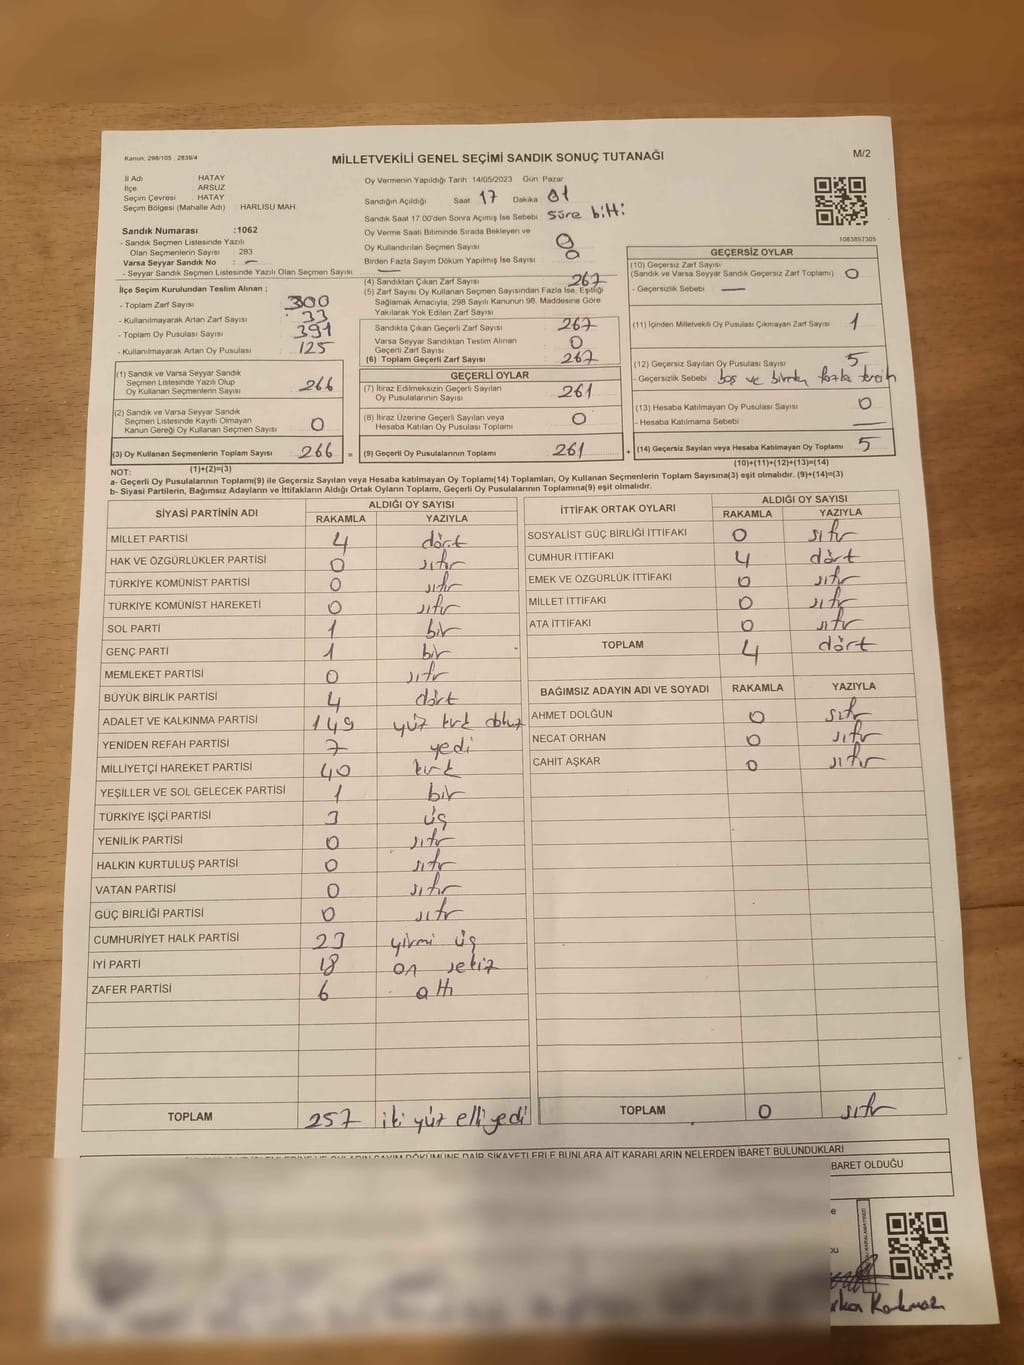 Kanun: 298/105 . 2839/4
MİLLETVEKİLİ GENEL SEÇİMİ SANDIK SONUÇ TUTANAĞI
M/2
İl Adı : HATAY
İlçe : ARSUZ
Seçim Çevresi : HATAY
Seçim Bölgesi (Mahalle Adı) : HARLISU MAH.
Sandık Numarası :1062
- Sandık Seçmen Listesinde Yazılı
Olan Seçmenlerin Sayısı : 283
Varsa Seyyar Sandık No : —
- Seyyar Sandık Seçmen Listesinde Yazılı Olan Seçmen Sayısı : —
Oy Vermenin Yapıldığı Tarih : 14/05/2023 Gün : Pazar
Sandığın Açıldığı Saat : 17 Dakika : 01
Sandık Saat 17.00'den Sonra Açımış İse Sebebi : süre bitti
Oy Verme Saati Bitiminde Sırada Bekleyen ve
Oy Kullandırılan Seçmen Sayısı : 0
Birden Fazla Sayım Döküm Yapılmış İse Sayısı : 0
1083857305
İlçe Seçim Kurulundan Teslim Alınan ;
- Toplam Zarf Sayısı : 300
- Kullanılmayarak Artan Zarf Sayısı : 33
- Toplam Oy Pusulası Sayısı : 391
- Kullanılmayarak Artan Oy Pusulası : 125
(1) Sandık ve Varsa Seyyar Sandık
Seçmen Listesinde Yazılı Olup
Oy Kullanan Seçmenlerin Sayısı : 266
(2) Sandık ve Varsa Seyyar Sandık
Seçmen Listesinde Kayıtlı Olmayan
Kanun Gereği Oy Kullanan Seçmen Sayısı : 0
(3) Oy Kullanan Seçmenlerin Toplam Sayısı : 266 =
(4) Sandıktan Çıkan Zarf Sayısı : 267
(5) Zarf Sayısı Oy Kullanan Seçmen Sayısından Fazla İse, Eşitliği
Sağlamak Amacıyla, 298 Sayılı Kanunun 98. Maddesine Göre
Yakılarak Yok Edilen Zarf Sayısı :
Sandıkta Çıkan Geçerli Zarf Sayısı : 267
Varsa Seyyar Sandıktan Teslim Alınan
Geçerli Zarf Sayısı : 0
(6) Toplam Geçerli Zarf Sayısı : 267
GEÇERLİ OYLAR
(7) İtiraz Edilmeksizin Geçerli Sayılan
Oy Pusulalarının Sayısı : 261
(8) İtiraz Üzerine Geçerli Sayılan veya
Hesaba Katılan Oy Pusulası Toplamı : 0
(9) Geçerli Oy Pusulalarının Toplamı : 261 +
GEÇERSİZ OYLAR
(10) Geçersiz Zarf Sayısı
(Sandık ve Varsa Seyyar Sandık Geçersiz Zarf Toplamı) : 0
- Geçersizlik Sebebi : —
(11) İçinden Milletvekili Oy Pusulası Çıkmayan Zarf Sayısı : 1
(12) Geçersiz Sayılan Oy Pusulası Sayısı : 5
- Geçersizlik Sebebi : boş ve birden fazla tercih
(13) Hesaba Katılmayan Oy Pusulası Sayısı : 0
- Hesaba Katılmama Sebebi : —
(14) Geçersiz Sayılan veya Hesaba Katılmayan Oy Toplamı : 5
NOT: (1)+(2)=(3)
(10)+(11)+(12)+(13)=(14)
a- Geçerli Oy Pusulalarının Toplamı(9) ile Geçersiz Sayılan veya Hesaba katılmayan Oy Toplamı(14) Toplamları, Oy Kullanan Seçmenlerin Toplam Sayısına(3) eşit olmalıdır. (9)+(14)=(3)
b- Siyasi Partilerin, Bağımsız Adayların ve İttifakların Aldığı Oy Oyların Toplamı, Geçerli Oy Pusulalarının Toplamına(9) eşit olmalıdır.
SİYASİ PARTİNİN ADI ALDIĞI OY SAYISI
RAKAMLA YAZIYLA
MİLLET PARTİSİ 4 dört
HAK VE ÖZGÜRLÜKLER PARTİSİ 0 sıfır
TÜRKİYE KOMÜNİST PARTİSİ 0 sıfır
TÜRKİYE KOMÜNİST HAREKETİ 0 sıfır
SOL PARTİ 1 bir
GENÇ PARTİ 1 bir
MEMLEKET PARTİSİ 0 sıfır
BÜYÜK BİRLİK PARTİSİ 4 dört
ADALET VE KALKINMA PARTİSİ 149 yüz kırk dokuz
YENİDEN REFAH PARTİSİ 7 yedi
MİLLİYETÇİ HAREKET PARTİSİ 40 kırk
YEŞİLLER VE SOL GELECEK PARTİSİ 1 bir
TÜRKİYE İŞÇİ PARTİSİ 3 üç
YENİLİK PARTİSİ 0 sıfır
HALKIN KURTULUŞ PARTİSİ 0 sıfır
VATAN PARTİSİ 0 sıfır
GÜÇ BİRLİĞİ PARTİSİ 0 sıfır
CUMHURİYET HALK PARTİSİ 23 yirmi üç
İYİ PARTİ 18 on sekiz
ZAFER PARTİSİ 6 altı
TOPLAM 257 iki yüz elli yedi
İTTİFAK ORTAK OYLARI ALDIĞI OY SAYISI
RAKAMLA YAZIYLA
SOSYALİST GÜÇ BİRLİĞİ İTTİFAKI 0 sıfır
CUMHUR İTTİFAKI 4 dört
EMEK VE ÖZGÜRLÜK İTTİFAKI 0 sıfır
MİLLET İTTİFAKI 0 sıfır
ATA İTTİFAKI 0 sıfır
TOPLAM 4 dört
BAĞIMSIZ ADAYIN ADI VE SOYADI RAKAMLA YAZIYLA
AHMET DOLĞUN 0 sıfır
NECAT ORHAN 0 sıfır
CAHİT AŞKAR 0 sıfır
TOPLAM 0 sıfır
DÖKÜMÜNE DAİR ŞİKAYETLERLE BUNLARA AİT KARARLARIN NELERDEN İBARET BULUNDUKLARI
BARET OLDUĞU
Korkmaz